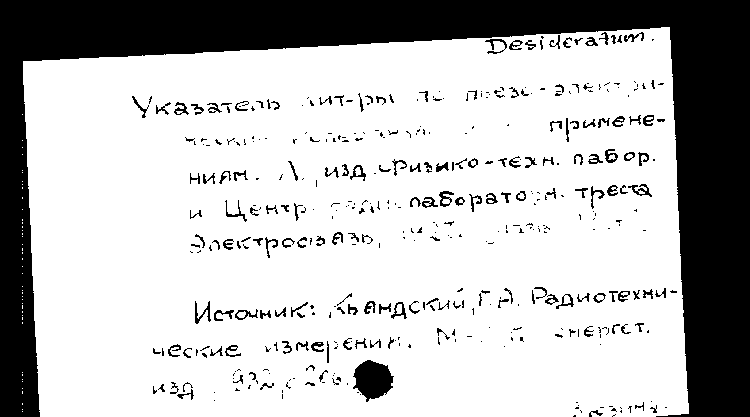 Desideratum.
Указатель лит-ры по пьезо-электри-
примене-
ниям. Л., изд. Физико-техн. лабор.
и Центр. радиолаборатори. треста
Электросвязь, 1927.
Источник: Кьяндский, Г.А. Радиотехни-
ческие измерении. М-Л, энергет.
изд, 932, с 206.